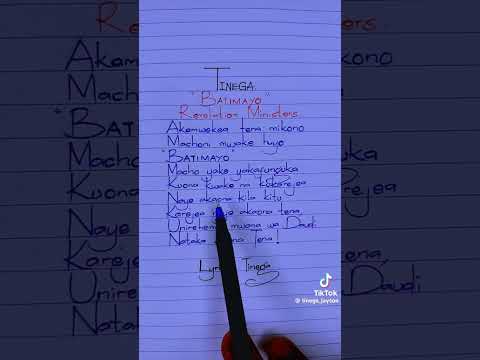 TINEGA
"BATIMAYO"
Revelation Ministers
Akamwekea tena mikono
Machoni mwake huyo
"BATIMAYO"
Macho yake yakafunguka
Kuona kwake na kukarejea
Naye akaona kila kitu
Karejea naye akaona tena,
Unirehemu mwana wa Daudi
Nataka Tena!
Tinega
TikTok
@tinega_jaytoo